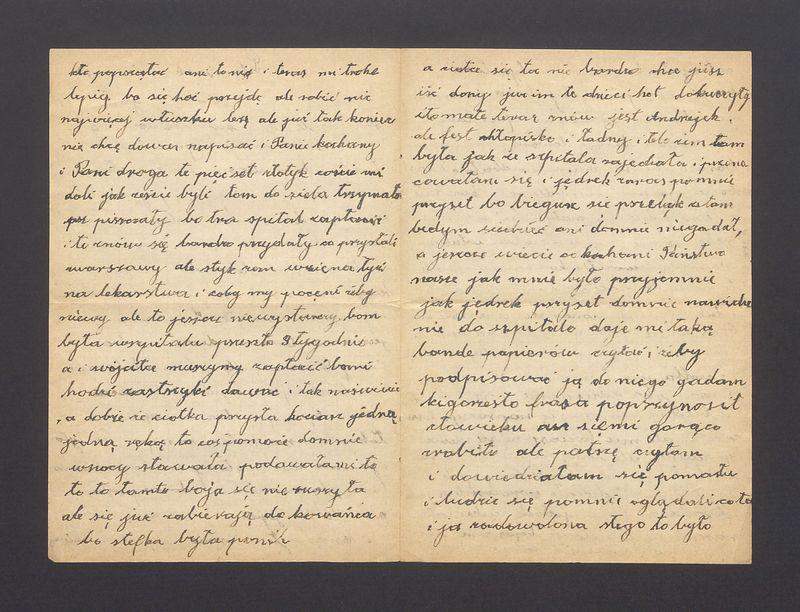 kto poporzątać ani to nic i teraz mi trohe
lepiej bo się hoć przejdę ale robić nic
najwięcej w łuszku leze ale już tak koniec
nie chcę dowas napisać i Panie kochany
i Pani droga te pięćset złotyk coście mi
dali jak żeście byli tam do zioła trzymała
piszczały bo tza spital zapłacić
i te znów się bardzo przydały co przysłali
warszawy ale styk wam wziena tyś
na lekarstwa i zoby my poceni żeby
niewy ale to jeszce niewystarcy bom
była wszpitalu przeszło 3 tygodnie
a i wójitce muszymy zapłacić bomi
hodzi zastrzyki dawać i tak naświnie
, a dobże że ciotka przysła hociasz jedną
jedną ręką to cospomoże domnie
wnocy stawała podawała mi to
to to tamto boja się nie ruszyła
ale się już zabierają do kowańca
bo stefka była poniż
a ciotce się ta nie bardzo chce jusz
iść doniy juz im te dzieci het dokuczyły
i to małe teraz znów jest Andrzejek.
ale fest chłopisko i ładny i telo żem tam
była jak ze szpitala zajechała i przeno
cowałam się i jędrek zaras pomnie
przyset bo biegusz sie przelięk ze tam
bedym siedzieć ani domnie niegadał,
a jeszcze wiecie co kochani Państwo
nasze jak mnie było przyjemnie
jak jędrek przyset domnie nawidze
nie do szpitala daje mi taką
bande papierów czytać i żeby
podpisować ją do niego gadam
kigo poprzynosił
człowieku siemi gorąco
zrobiło ale patrzę czytam
i dowiedziałam się pomału
i ludzie się pomnie oglądali co to
i ja zadowolona stego to było